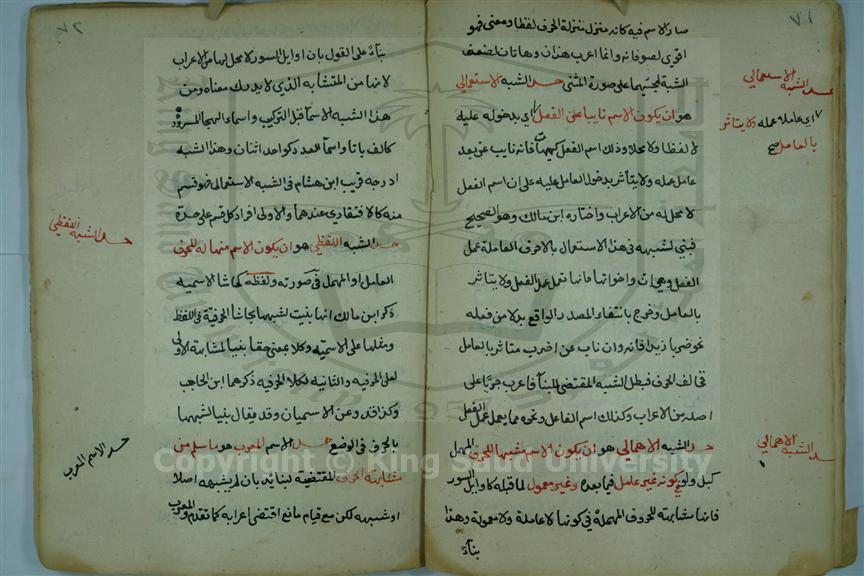 ٧١
صار الاسم فيه كانه منزل منزلة الحرف لفظا ومعنى فهو
اقوى لصوقا به وانما اعرب هذان وهاتان لضعف
الشبه لمجيئهما على صورة المثنى حد الشبه الاستعمالي
هو ان يكون الاسم نايبا عن الفعل اي بدخوله عليه
لا لفظا ولا محلا وذلك اسم الفعل كهيهات فانه نايب عن بعد
عامل عمله ولا يتاثر بدخول العامل عليه على ان اسم الفعل
لا محل له من الاعراب واختاره ابن مالك وهو الصحيح
فبني لشبهه في هذا الاستعمال بالاحرف العاملة عمل
الفعل وهي ان واخواتها فانها تعمل عمل الفعل ولا يتاثر
بالعامل وخرج بانتفاء المصدر الواقع بدلا من فعله
نحو ضربا زيدا فانه وان ناب عن اضرب متاثر بالعامل
فخالف الحرف فبطل الشبه المقتضي للبنا فاعرب جريا على
اصله من الاعراب وكذلك اسم الفاعل ونحوه مما يعمل عمل الفعل
حد الشبه الاهمالي هو ان يكون الاسم مشبها للحرف المهمل
كبل ولو في كونه غير عامل فيما بعده وغير معمول لما قبله كاوايل السور
فانها مشابهة للحروف المهملة في كونها لا عاملة ولا معمولة وهذا
بناءً
حد الشبه الاستعمالي
اي عامله عمله ولا يتاثر
بالعامل صح
حد الشبه الاهمالي
٧٢
بناءً على القول بان اوايل السور لا محل لها من الاعراب
لانها من المتشابه الذي لا يدرك معناه ومن
هذا الشبه الاسما قبل التركيب واسماء الهجا المسرودة
كالف با تا واسما العدد كواحد اثنان وهذا الشبه
ادرجه قريب ابن هشام في الشبه الاستعمالي فهو قسم
منه كالافتقاري عندهما والاولى افراد كل قسم على حدة
حد الشبه اللفظي هو ان يكون الاسم مشابها للحرف
العامل او المهمل في صورته ولفظه كحاشا الاسمية
ذكر ابن مالك انها بنيت لشبهها بحاشا الحرفية في اللفظ
ومثلها على الاسمية وكلا بمعنى حقا بنيا لمشابهة الاولى
لعلى الحرفية والثانية لكلا الحرفية ذكرهما ابن الحاجب
وكذا قد وعن الاسميان وقد يقال بنيا لشبهها
بالحرف في الوضع حد الاسم المعرب هو ما سلم من
مشابهة الحرف المقتضية لبنايه بان لم يشبهه اصلا
او شبهه لكن مع قيام مانع اقتضى اعرابه كما تقدم والمعرب
حد الشبه اللفظي
حد الاسم المعرب
Copyright © King Saud University